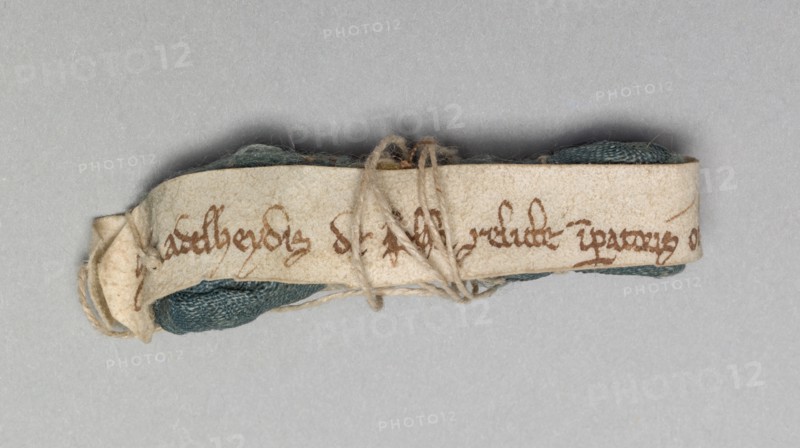 PHOTO12
PHOTO12
PHOTO12
PHOTO12
PHOTO12
adelheydis de relicte īp̄atoris
PHOTO12
PHOTO12
PHOTO12
PHOTO12
PHOTO12